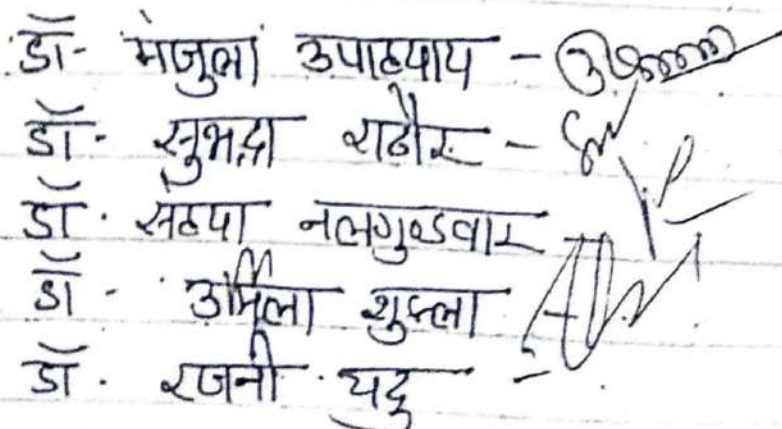 डॉ- मंजुला उपाध्याय -
डॉ. सुभद्रा राठौर -
डॉ. संध्या नलगुण्डवार
डॉ - उर्मिला शुक्ला
डॉ. रजनी यदु -